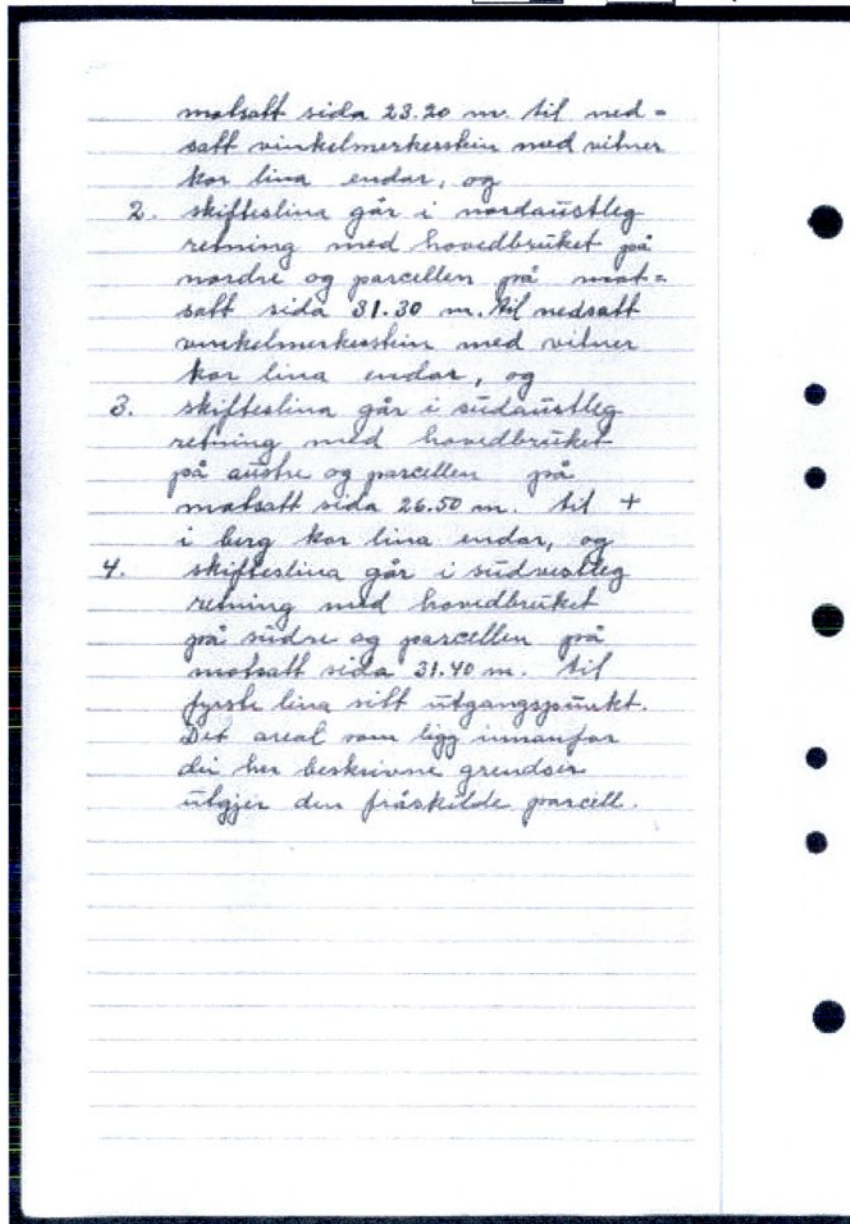 motsatt sida 23.20 m. til ned=
satt vinkelmerkesskin med vitner
kor lina endar, og
2. skifteslina går i nordaustleg
retning med hovedbruket på
nordre og parcellen på mot=
satt sida 31.30 m. til nedsatt
vinkelmerkesskin med vitner
kor lina endar, og
3. skifteslina går i südaustleg
retning med hovedbruket
på austre og parcellen på
motsatt sida 26.50 m. til +
i berg kor lina endar, og
4. skifteslina går i südvestleg
retning med hovedbruket
på südre og parcellen på
motsatt sida 31.40 m. til
fyrste lina sitt utgangspunkt.
Det areal som ligg innanfor
dei her beskrivne grendser
utgjer den fråskilde parcell.